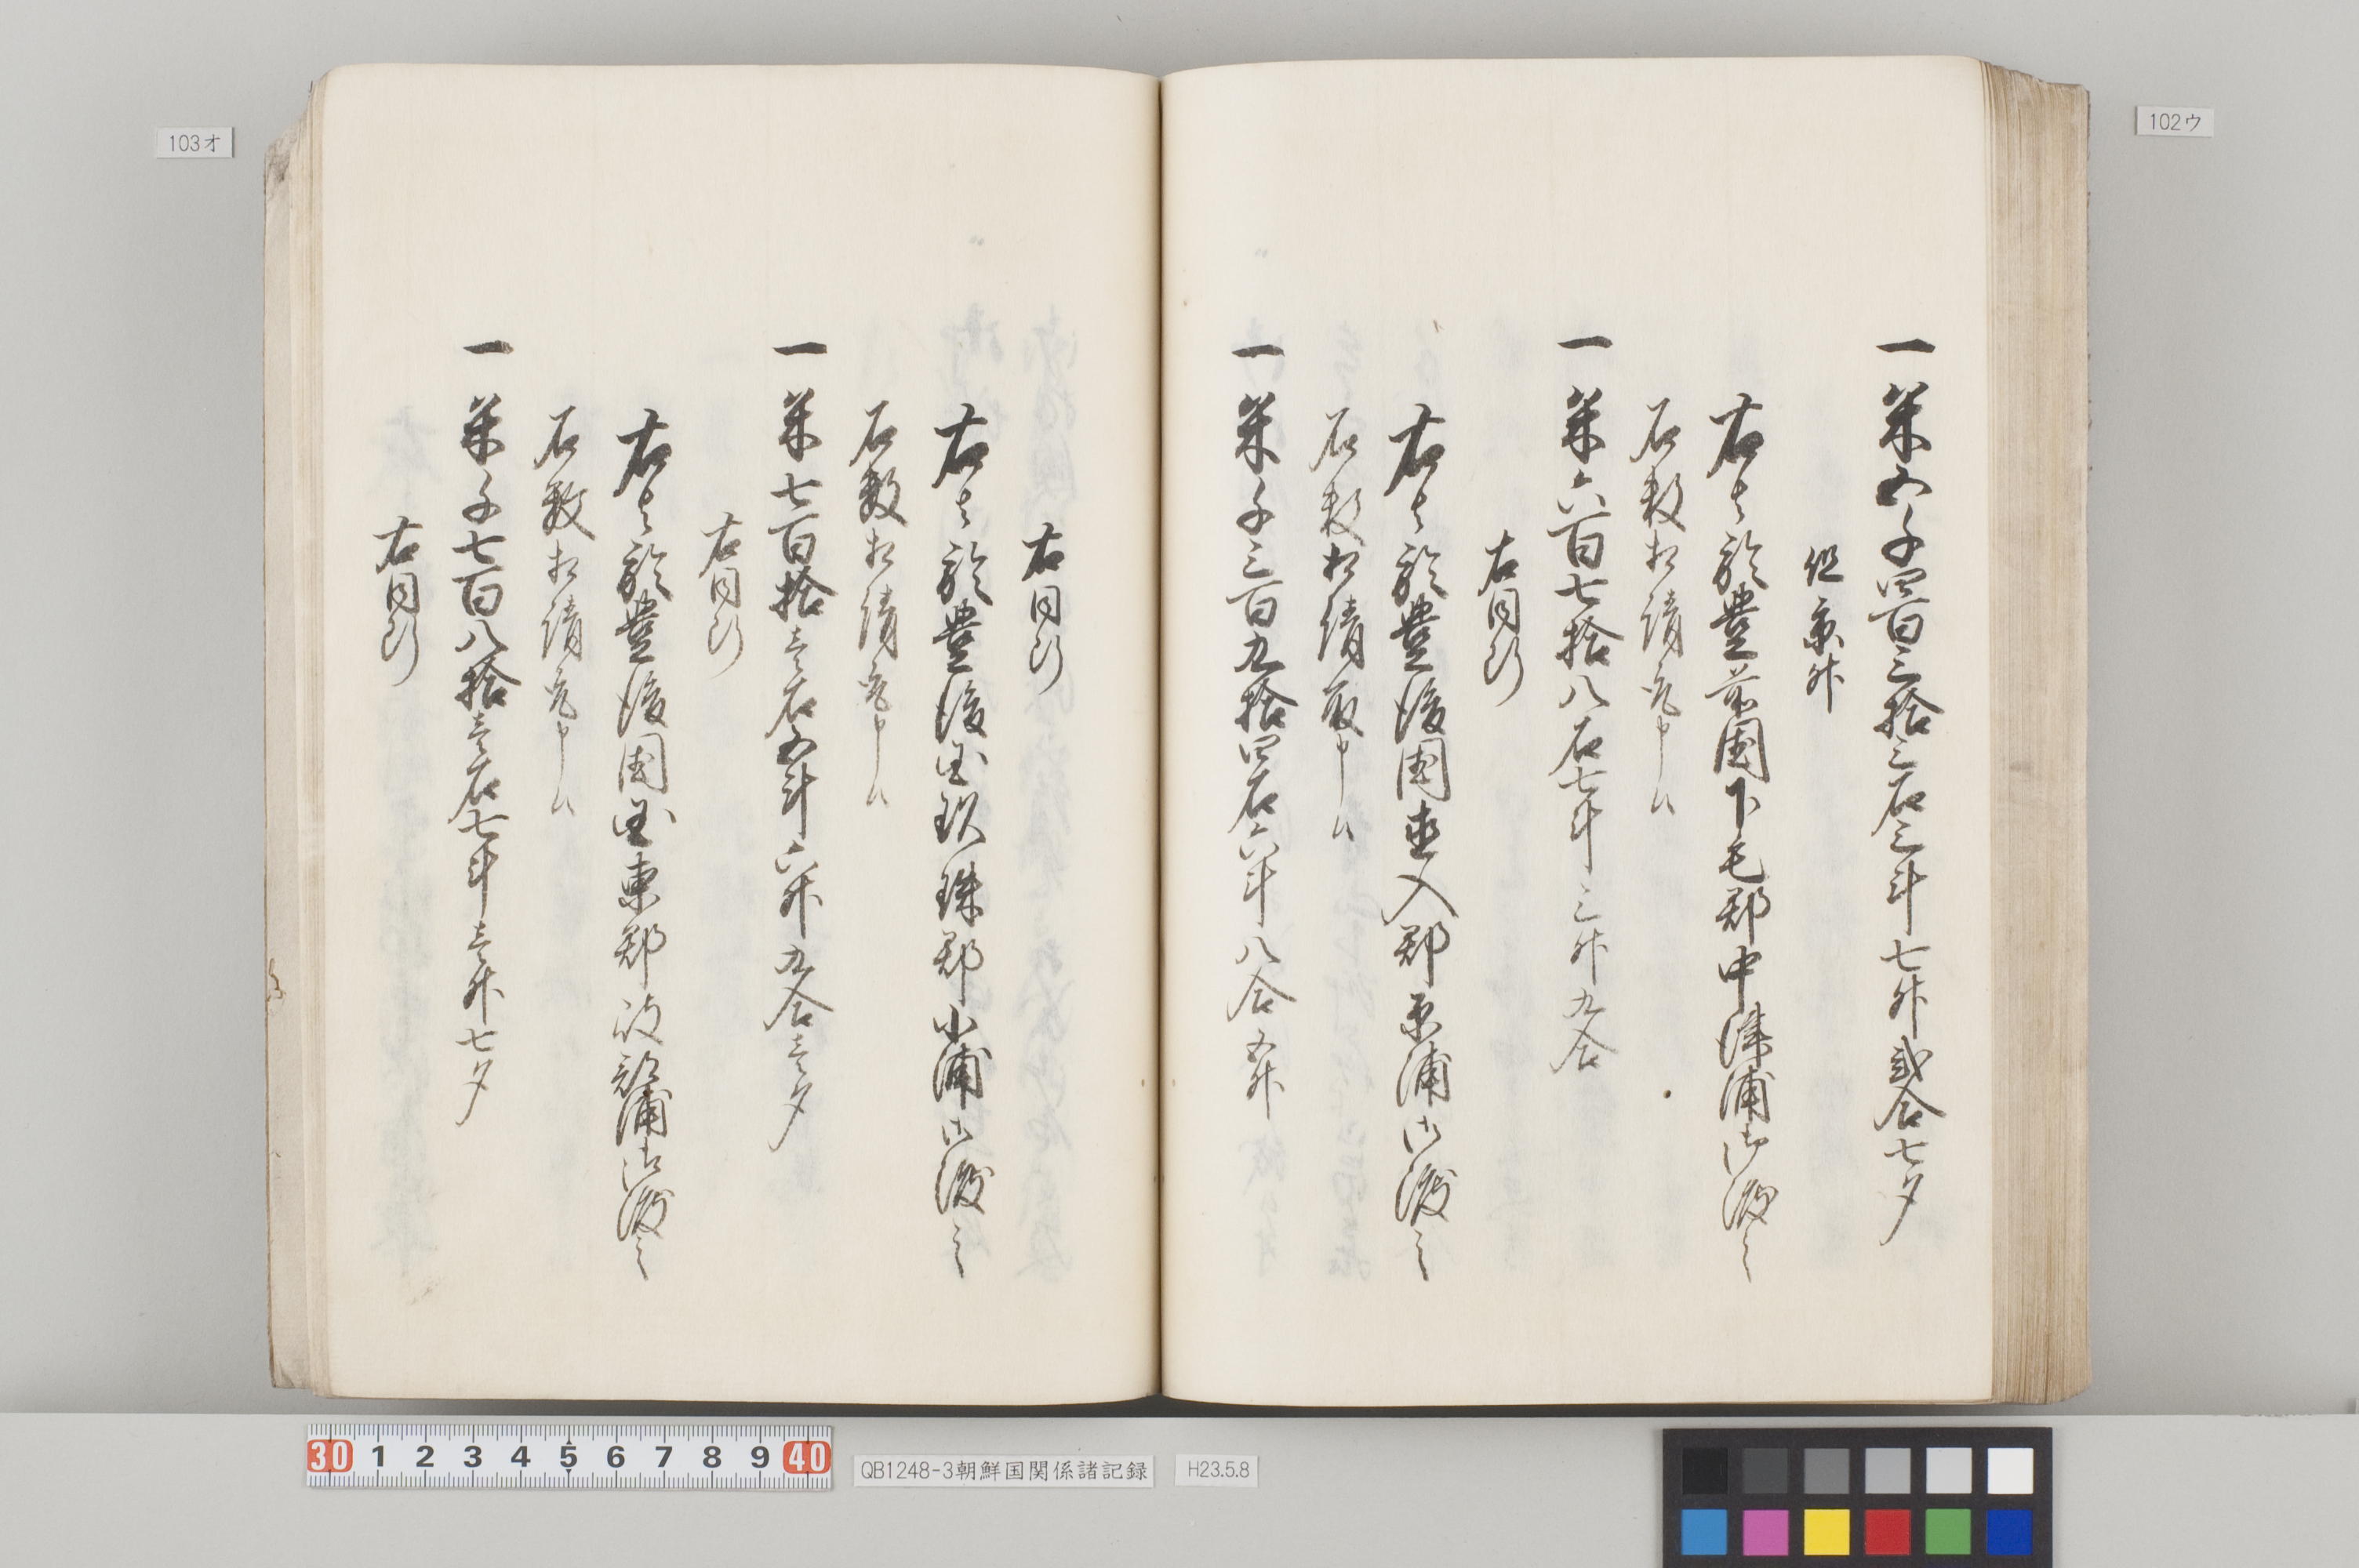 102ウ
一 米五千四百三拾三石三斗七升弐合七夕
但京升
右者於豊前国下毛郡中津浦御渡之
石数相請取申候
一 米六百七拾八石七斗三升九合
右同断
右者於豊後国直入郡原浦御渡之
石数相請取申候
一 米千三百九拾四石六斗八合五升
103オ
右同断
右者於豊後国玖珠郡小浦御渡之
石数相請取申候
一 米七百拾壱石五斗六升九合壱夕
右同断
右者於豊後国国東郡 浦御渡之
石数相請取申候
一 米千七百八拾壱石七斗壱升七夕
右同断
30 1 2 3 4 5 6 7 8 9 40
QB1248-3朝鮮国関係諸記録
H23.5.8